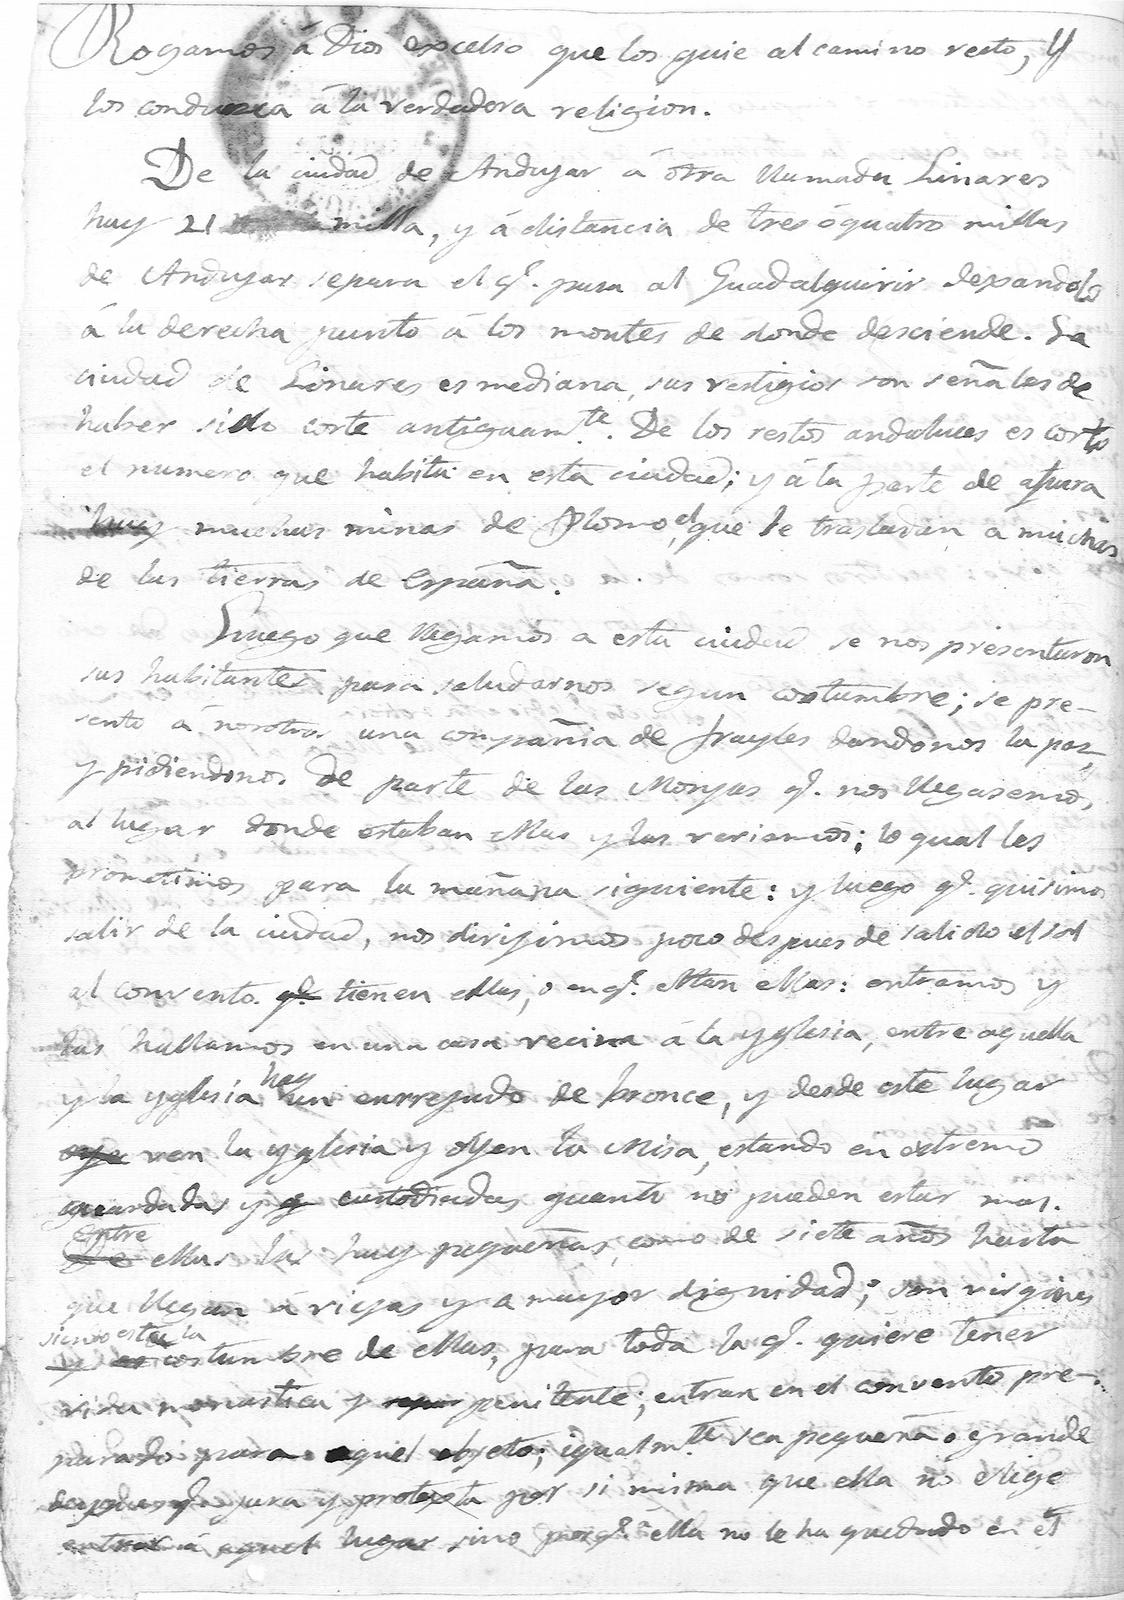 Rogamos á Dios excelso que los guie al camino recto, y
los conduzca á la verdadera religion.
De la ciudad de Andujar á otra llamada Linares
hay 21 milla, y á distancia de tres ó quatro millas
de Andujar separa el q.e pasa al Guadalquivir dexandolo
á la derecha junto á los montes de donde desciende. La
ciudad de Linares es mediana, sus vestigios son señales de
haber sido corte antiguam.te. De los restos andaluces es corto
el numero que habita en esta ciudad; y á la parte de afuera
hay muchas minas de Plomo, el que se trasladan a muchas
de las tierras de España.
Luego que llegamos a esta ciudad se nos presentaron
sus habitantes para saludarnos segun costumbre; se pre-
sentó á nosotros una compañia de frayles dandonos la paz,
y pidiendonos de parte de las Monjas q.e nos llegasemos
al lugar donde estaban ellas y las veriamos; lo qual les
prometimos para la mañana siguiente: y luego q.e quisimos
salir de la ciudad, nos dirijimos poco despues de salido el sol
al convento q.e tienen ellas, o en q.e estan ellas: entramos y
las hallamos en una casa vecina á la yglesia, entre aquella
y la yglesia hay un enrrejado de bronce, y desde este lugar
oye ven la yglesia y oyen la Misa, estando en extremo
guardadas y q custodiadas quanto no pueden estar mas.
Entre
De ellas las hay pequeñas, como de siete años hasta
que llegan á viejas y a mayor dignidad; son virgines
siendo esta la
y es costumbre de ellas, para toda la q.e quiere tener
vida monastica y penitente; entran en el convento pre-
parado para aquel objeto; igualm.te sea pequeña o grande
jura y protexta por si misma que ella no elige
entrar á aquel lugar sino porq.e á ella no le ha quedado en el